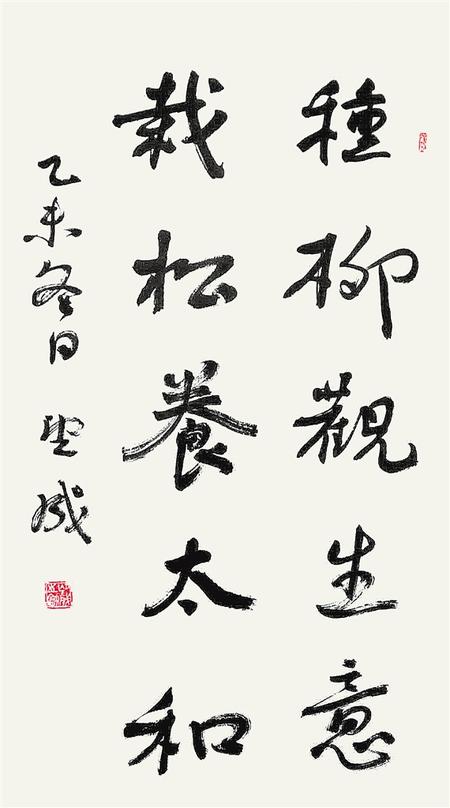 種柳觀生意
栽松養太和
乙未冬日
成